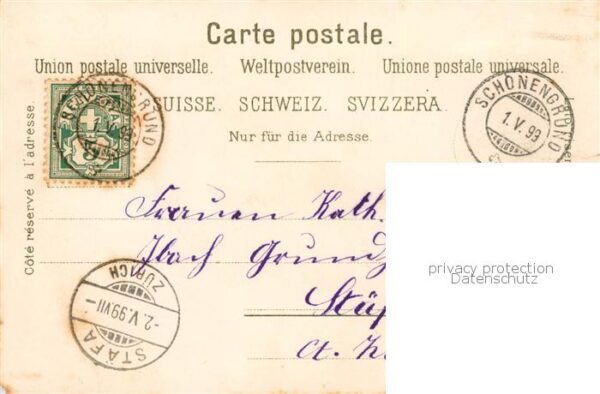 Carte postale.
Union postale universelle. Weltpostverein. Unione postale universale.
SUISSE. SCHWEIZ. SVIZZERA.
Nur für die Adresse.
Côté réservé à l'adresse.
SCHÖNENGRUND
1.V.99
Frauen Kath.
Ibach Grund
Stäf
Ct. Z
STÄFA
-2.V.99.VII-
ZÜRICH
privacy protection
Datenschutz